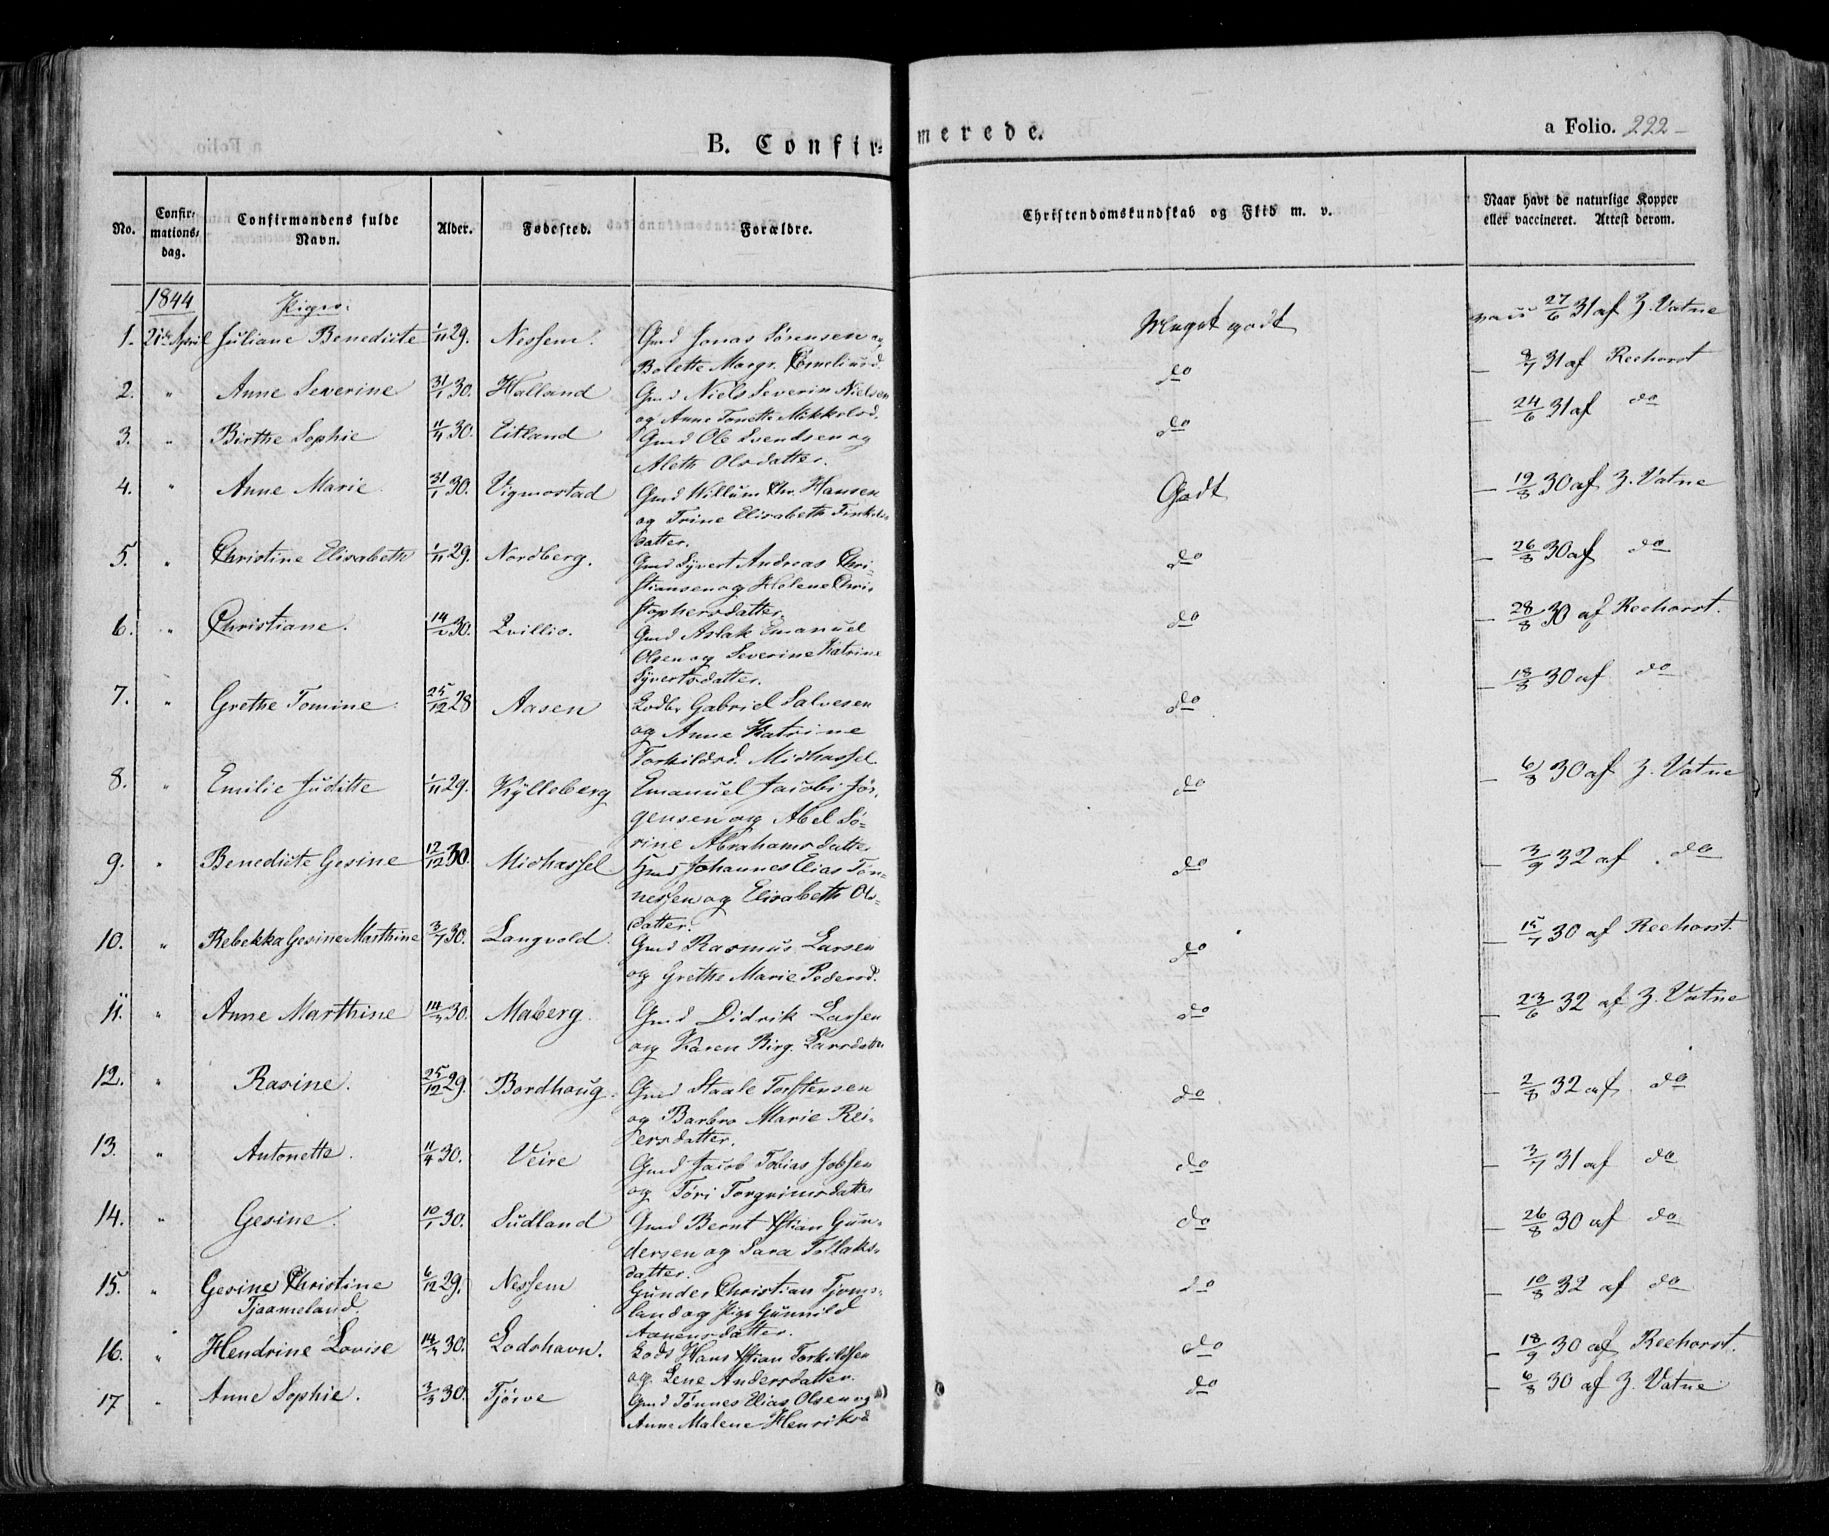 B. Confir-
merede.
a Folio. 222
No.
Confir-
mations-
dag.
Confirmandens fulde
Navn.
Alder.
Fødested.
Forældre.
Christendomskundskab og Flid m. v.
Naar havt de naturlige Kopper
eller vaccineret. Attest derom.
1844 Piger:
1. 21de April Juliane Benedicte 1/11 29. Nessem. Gmd Jonas Sørensen og Meget godt vacc 27/6 31 af Z. Vatne
Bolette Margr. Corneliusd.
2. " Anne Severine 31/1 30. Halland Gmd Niels Severin Nielsen do – 9/7 31 af Reehorst
og Anne Tonette Mikkelsd.
3. " Birthe Sophie 11/4 30. Eitland Gmd Ole Svendsen og do – 24/6 31 af do
Aleth Olsdatter.
4. " Anne Marie 31/1 30. Vigmostad Gmd Willum Chr. Hansen Godt – 19/8 30 af Z. Vatne
og Trine Elisabeth
datter.
5. " Christine Elisabeth 1/11 29. Nordberg. Gmd Syvert Andreas Chri- do – 26/8 30 af do
stiansen og Helene Chri-
stophersdatter.
6. " Christiane. 30. Qvillio. Gmd Aslak Emanuel do – 28/8 30 af Reehorst.
Olsen og Severine Katrine
Syvertsdatter.
7. " Grethe Tomine 25/12 28 Aasen Lods Gabriel Salvesen do – 18/8 30 af do
og Anne Katrine
Torkildsd. Midhassel
8. " Emilie Juditte 1/11 29. Kylleberg Emanuel Jacobi Jør- do – 6/8 30 af Z. Vatne
gensen og Abel Sø-
rine Abrahamsdatter
9. " Benedicte Gesine 12/12 30. Midhassel Gmd Johannes Elias Tøn- do – 3/9 32 af do
nessen og Elisabeth Ols-
datter.
10. " Rebekka Gesine Marthine 3/7 30. Langvold. Gmd Rasmus Larsen do – 15/7 30 af Reehorst.
og Grethe Marie Pedersd.
11. " Anne Marthine 14/3 30. Maberg. Gmd Didrik Larsen do – 23/6 32 af Z. Vatne
og Karen Birg. Larsdatter
12. " Rasine. 25/12 29. Bordhoug. Gmd Staale Torstensen do – 2/8 32 af do
og Barbro Marie Rei-
ersdatter.
13. " Antonette. 11/4 30. Veire Gmd Jacob Tobias Jobsen do – 3/7 31 af do
og Tøri Torgrimsdatter
14. " Gesine. 10/1 30. Sudland Gmd Bernt Xstian Gun- do – 26/8 30 af do
dersen og Sara Tollaks-
datter.
15. " Gesine Christine 6/12 29. Nessem Gunder Christian Tjoms- do – 10/8 32 af do
Tjaameland. land og Pige Gunnild
Aanensdatter.
16. " Hendrine Lovise 30. Lodshavn. Lods Hans Xstian Torkildsen do – 18/9 30 af Reehorst.
og Lene Andersdatter.
17 " Anne Sophie. 3/3 30. Tjørve Gmd Tønnes Elias Olsen og do – 6/8 30 af Z. Vatne
Anne Malene Henriksd